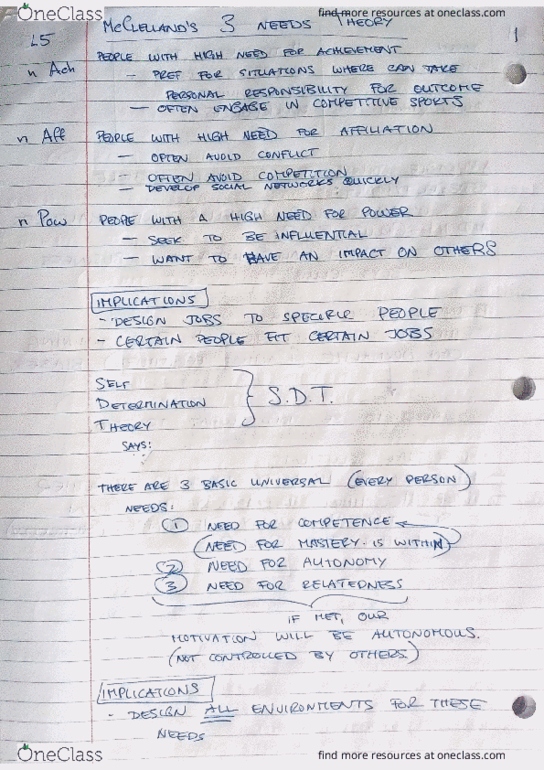 OneClass
find more resources at oneclass.com
L5
McClelland's 3 NEEDS THEORY
1
n Ach
PEOPLE WITH HIGH NEED FOR ACHIEVEMENT
- PREF FOR SITUATIONS WHERE CAN TAKE
PERSONAL RESPONSIBILITY FOR OUTCOME
- OFTEN ENGAGE IN COMPETITIVE SPORTS
n Aff
PEOPLE WITH HIGH NEED FOR AFFILIATION
- OFTEN AVOID CONFLICT
- OFTEN AVOID COMPETITION
- DEVELOP SOCIAL NETWORKS QUICKLY
n Pow
PEOPLE WITH A HIGH NEED FOR POWER
- SEEK TO BE INFLUENTIAL
- WANT TO HAVE AN IMPACT ON OTHERS
IMPLICATIONS
- DESIGN JOBS TO SPECIFIC PEOPLE
- CERTAIN PEOPLE FIT CERTAIN JOBS
SELF
DETERMINATION
THEORY
S.D.T.
SAYS:
THERE ARE 3 BASIC UNIVERSAL (EVERY PERSON)
NEEDS:
1 NEED FOR COMPETENCE
(NEED FOR MASTERY. IS WITHIN)
2 NEED FOR AUTONOMY
3 NEED FOR RELATEDNESS
IF MET, OUR
MOTIVATION WILL BE AUTONOMOUS.
(NOT CONTROLLED BY OTHERS)
IMPLICATIONS
- DESIGN ALL ENVIRONMENTS FOR THESE
NEEDS
OneClass
find more resources at oneclass.com